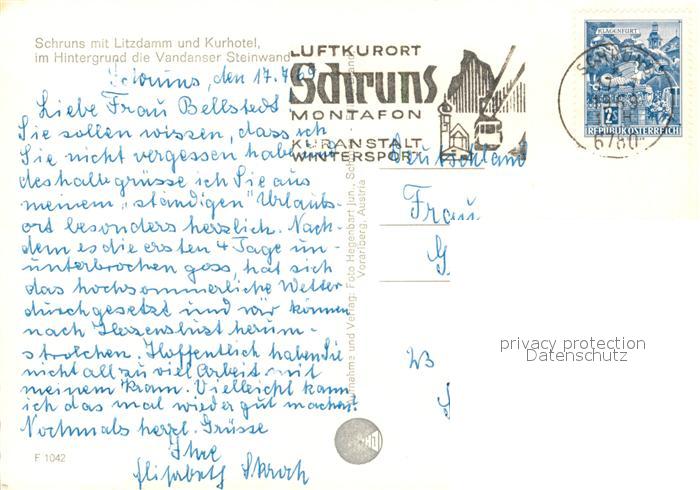 Schruns mit Litzdamm und Kurhotel,
im Hintergrund die Vandanser Steinwand
LUFTKURORT
Schruns
MONTAFON
KURANSTALT
WINTERSPORT
KLAGENFURT
REPUBLIK ÖSTERREICH
6780
Schruns, den 17.7.69
Liebe Frau Bellstedt
Sie sollen wissen, dass ich
Sie nicht vergessen habe und
deshalb grüsse ich Sie aus
meinem "ständigen" Urlaubs-
ort besonders herzlich. Nach-
dem es die ersten 4 Tage un-
unterbrochen goss, hat sich
das hochsommerliche Wetter
durchgesetzt und wir können
nach Herzenslust herum-
strolchen. Hoffentlich haben Sie
nicht all zu viel Arbeit mit
meinem Kram. Vielleicht kann
ich das mal wieder gut machen!
Nochmals herzl. Grüsse
Ihre
Elisabeth
Deutschland
Frau
G
Aufnahme und Verlag: Foto Hegenbart jun., Schruns
Vorarlberg, Austria
privacy protection
Datenschutz
F 1042